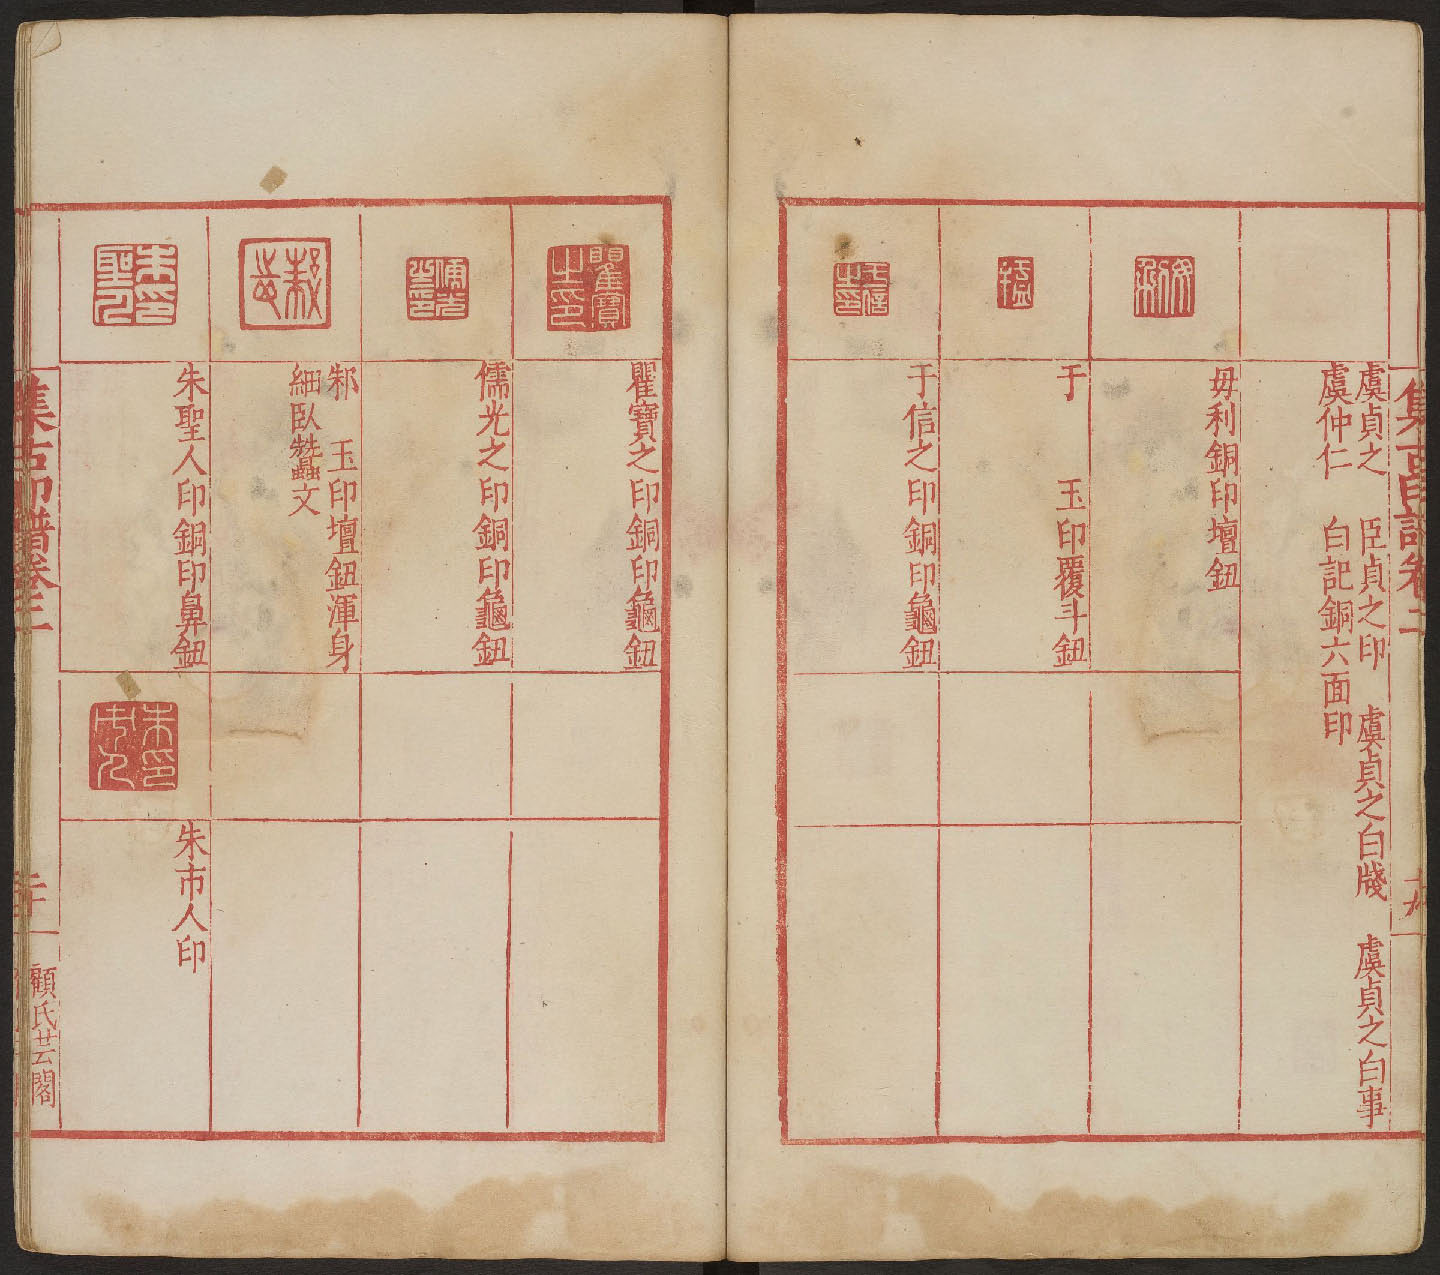 虞貞之　臣貞之印　虞貞之白牋　虞貞之白事
虞仲仁　白記銅六面印
毋利銅印壇鈕
于　玉印覆斗鈕
于信之印銅印龜鈕
瞿寶之印
瞿寶之印銅印龜鈕
儒光之印銅印龜鈕
邾　玉印壇鈕渾身
細臥蠶文
朱聖人印銅印鼻鈕
朱市人印
集古印譜卷二
顧氏芸閣